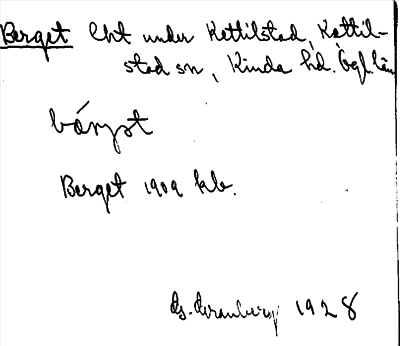 Berget Lht under Kettilstad, Kättil-
stad sn, Kinda hd. Ögl. län
bärjet
Berget 1909 kb.
G. Granberg 1928